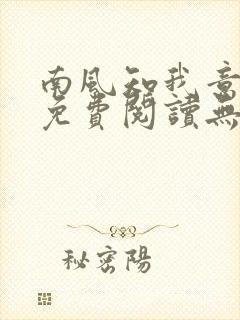 南風知我意
免費閱讀無
秘密陽